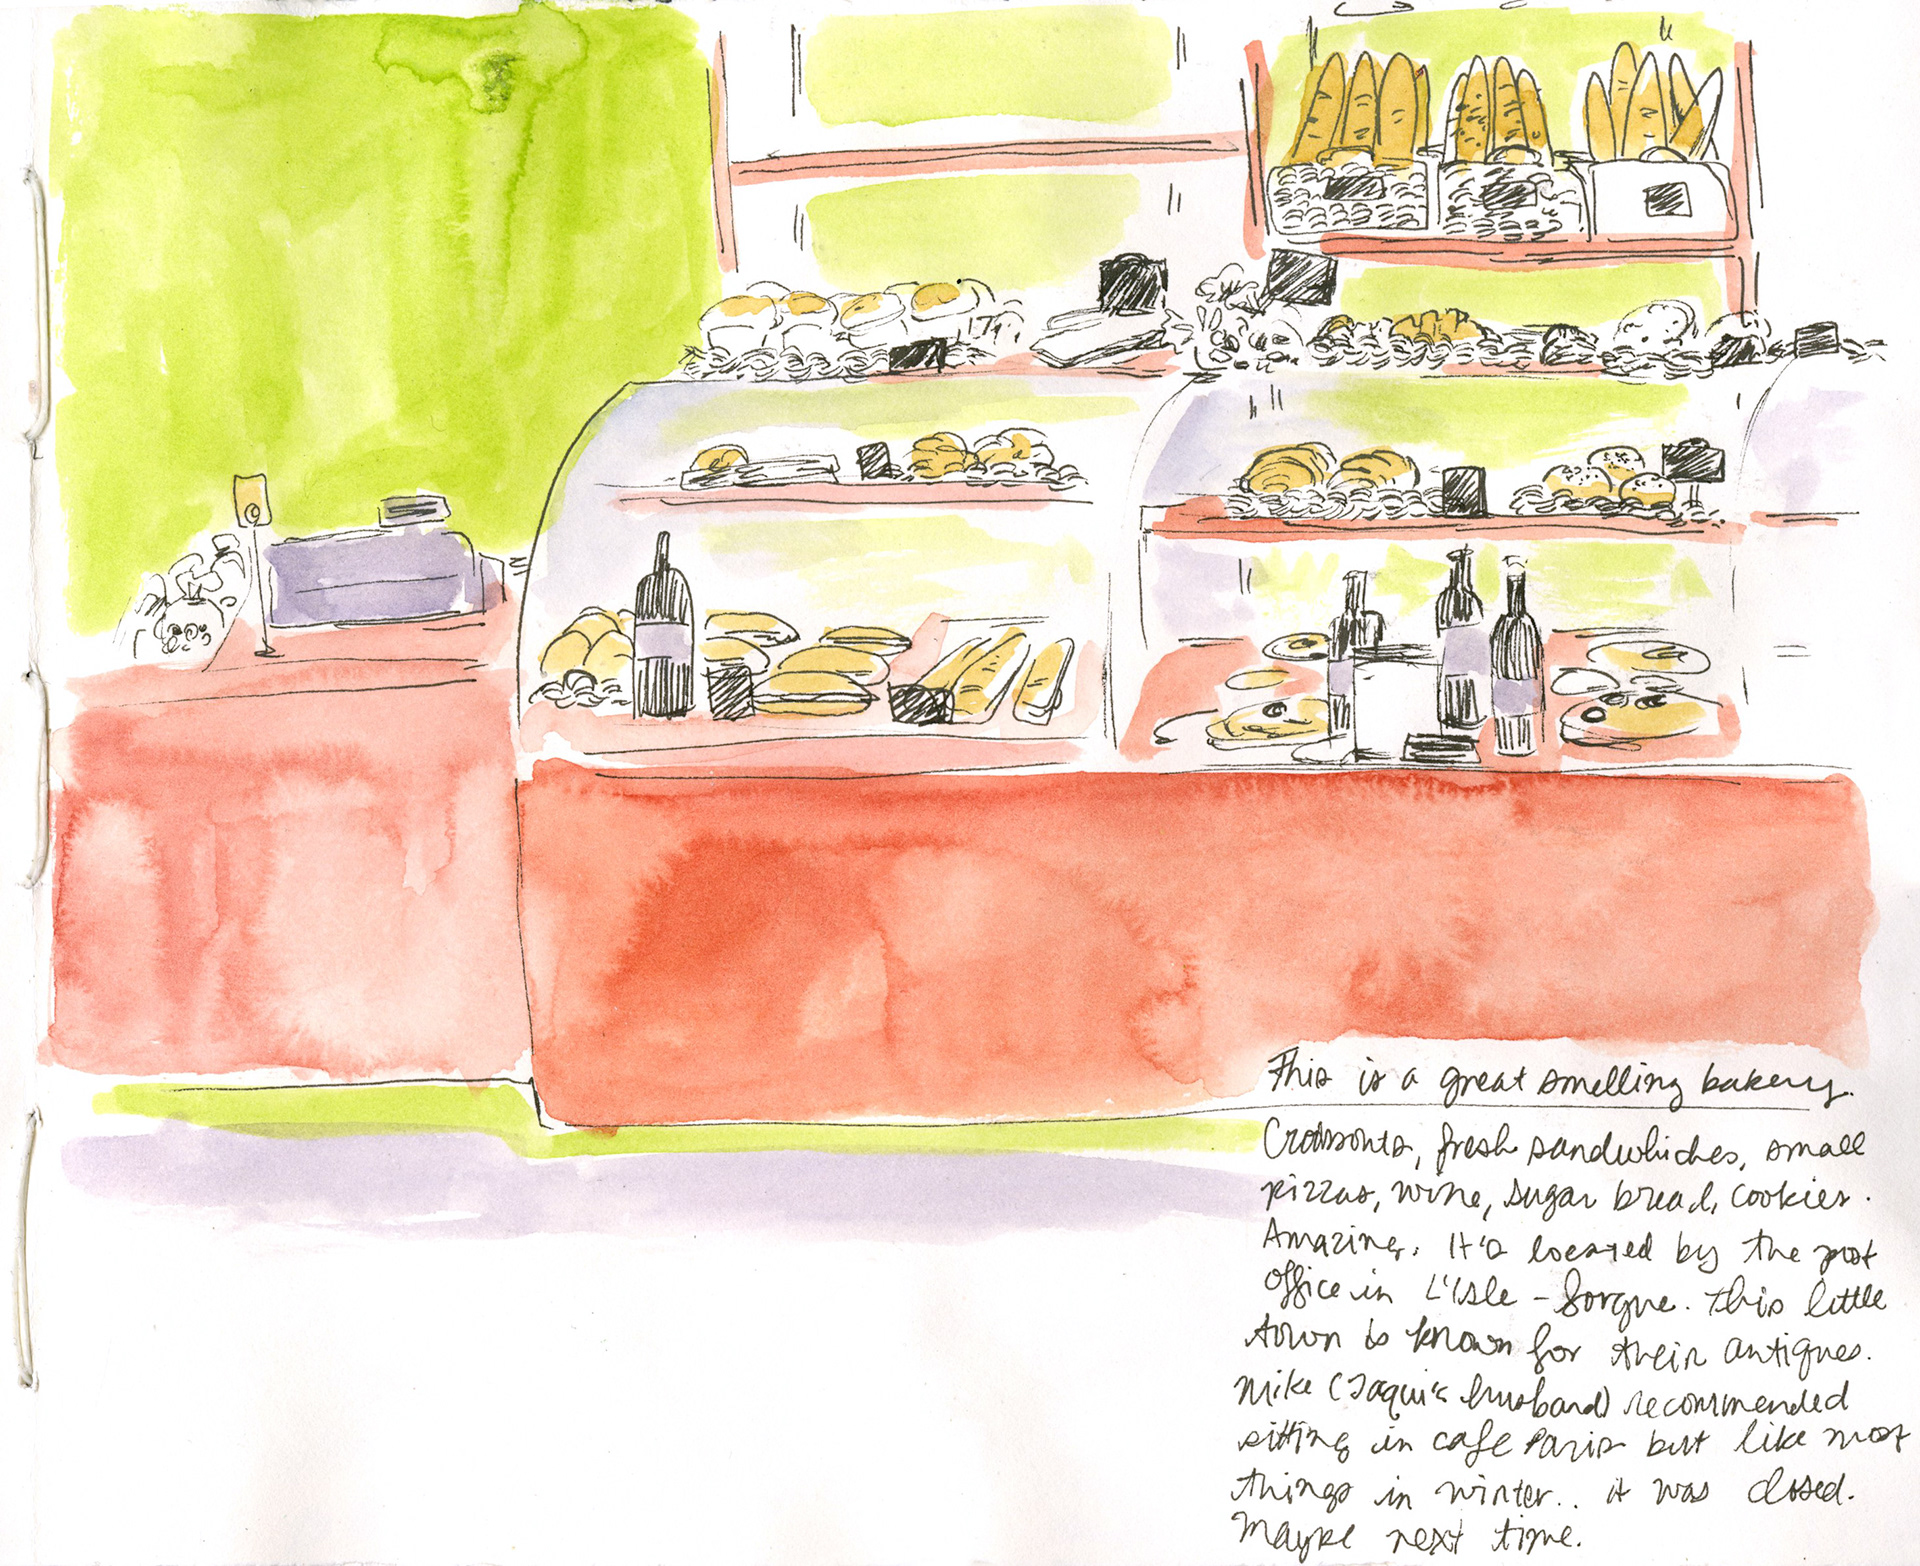 This is a great smelling bakery.
Croissants, fresh sandwhiches, small
pizzas, wine, sugar bread, cookies.
Amazing. It's located by the post
office in L'Isle - Sorgue. This little
town is known for their antiques.
Mike (Jaqui's husband) recommended
sitting in cafe Paris but like most
things in winter.. it was closed.
Maybe next time.